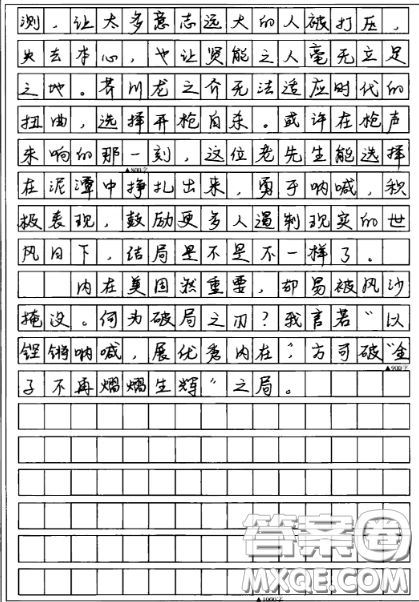 测，让太多意志远大的人被打压，
失去本心，也让贤能之人毫无立足
之地。芥川龙之介无法适应时代的
扭曲，选择开枪自杀。或许在枪声
未响的那一刻，这位老先生能选择
▲800字
在泥潭中挣扎出来，勇于呐喊，积
极表现，鼓励更多人遏制现实的世
风日下，结局是不是不一样了。
内在美固然重要，却易被风沙
掩没。何为破局之刃？我言若“以
铿锵呐喊，展优秀内在”，方可破“金
▲900字
子不再熠熠生辉”之局。
答案圈
MXQE.COM
▲1000字